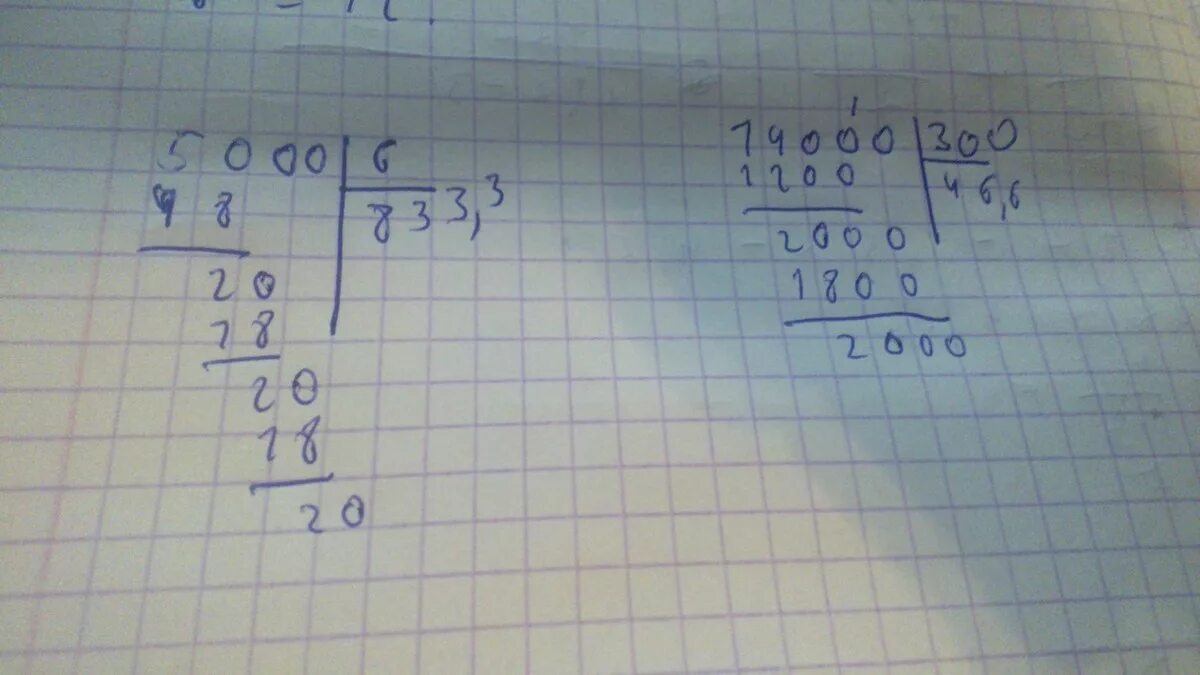 5000 | 6
48 | 833,3
20
18
20
18
20
14000 | 300
1200 | 46,6
2000
1800
2000